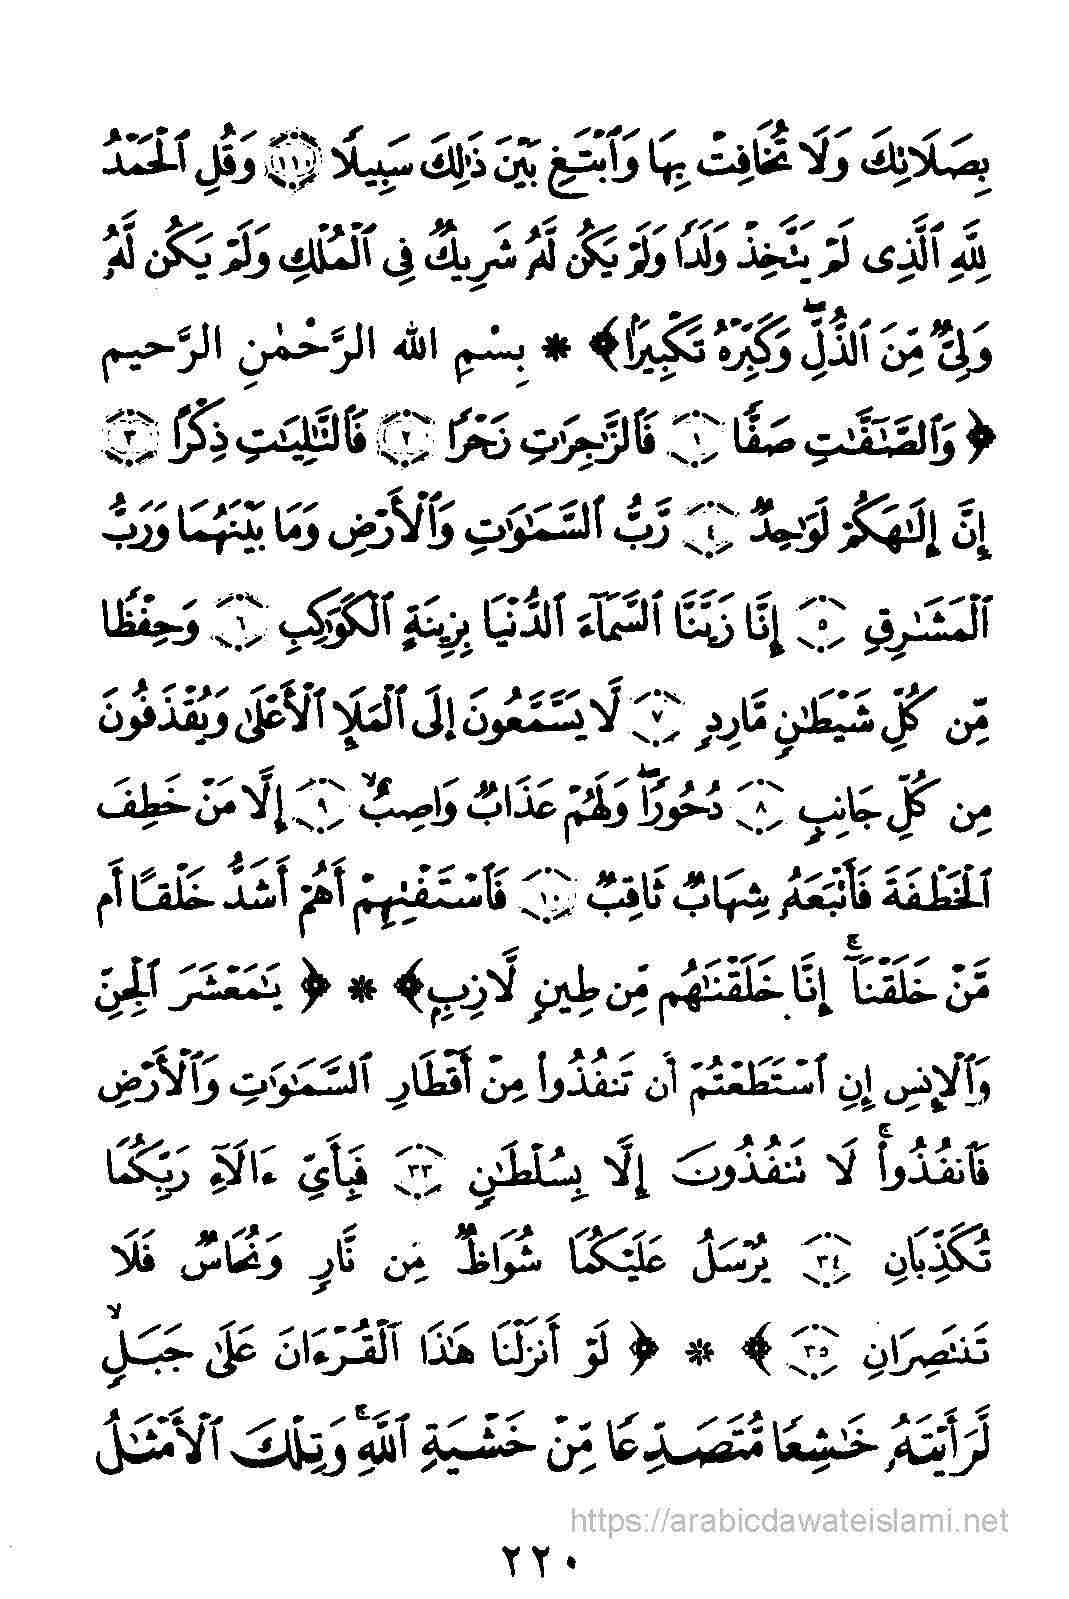 بِصَلَاتِكَ وَلَا تُخَافِتْ بِهَا وَٱبْتَغِ بَيْنَ ذَٰلِكَ سَبِيلًا ١١٠ وَقُلِ ٱلْحَمْدُ
لِلَّهِ ٱلَّذِى لَمْ يَتَّخِذْ وَلَدًا وَلَمْ يَكُن لَّهُۥ شَرِيكٌ فِى ٱلْمُلْكِ وَلَمْ يَكُن لَّهُۥ
وَلِىٌّ مِّنَ ٱلذُّلِّ ۖ وَكَبِّرْهُ تَكْبِيرًا﴾ * بِسْمِ الله الرَّحْمٰنِ الرَّحيم
﴿ وَٱلصَّٰٓفَّٰتِ صَفًّا ١ فَٱلزَّٰجِرَٰتِ زَجْرًا ٢ فَٱلتَّٰلِيَٰتِ ذِكْرًا ٣
إِنَّ إِلَٰهَكُمْ لَوَٰحِدٌ ٤ رَّبُّ ٱلسَّمَٰوَٰتِ وَٱلْأَرْضِ وَمَا بَيْنَهُمَا وَرَبُّ
ٱلْمَشَٰرِقِ ٥ إِنَّا زَيَّنَّا ٱلسَّمَآءَ ٱلدُّنْيَا بِزِينَةٍ ٱلْكَوَاكِبِ ٦ وَحِفْظًا
مِّن كُلِّ شَيْطَٰنٍ مَّارِدٍ ٧ لَّا يَسَّمَّعُونَ إِلَى ٱلْمَلَإِ ٱلْأَعْلَىٰ وَيُقْذَفُونَ
مِن كُلِّ جَانِبٍ ٨ دُحُورًا ۖ وَلَهُمْ عَذَابٌ وَاصِبٌ ۙ ٩ إِلَّا مَنْ خَطِفَ
ٱلْخَطْفَةَ فَأَتْبَعَهُۥ شِهَابٌ ثَاقِبٌ ١٠ فَٱسْتَفْتِهِمْ أَهُمْ أَشَدُّ خَلْقًا أَم
مَّنْ خَلَقْنَآ ۚ إِنَّا خَلَقْنَٰهُم مِّن طِينٍ لَّازِبٍۭ﴾ * ﴿ يَٰمَعْشَرَ ٱلْجِنِّ
وَٱلْإِنسِ إِنِ ٱسْتَطَعْتُمْ أَن تَنفُذُوا۟ مِنْ أَقْطَارِ ٱلسَّمَٰوَٰتِ وَٱلْأَرْضِ
فَٱنفُذُوا۟ ۚ لَا تَنفُذُونَ إِلَّا بِسُلْطَٰنٍ ٣٣ فَبِأَىِّ ءَالَآءِ رَبِّكُمَا
تُكَذِّبَانِ ٣٤ يُرْسَلُ عَلَيْكُمَا شُوَاظٌ مِّن نَّارٍ وَنُحَاسٌ فَلَا
تَنتَصِرَانِ ٣٥ ﴾ * ﴿ لَوْ أَنزَلْنَا هَٰذَا ٱلْقُرْءَانَ عَلَىٰ جَبَلٍۙ
لَّرَأَيْتَهُۥ خَٰشِعًا مُّتَصَدِّعًا مِّنْ خَشْيَةِ ٱللَّهِ ۚ وَتِلْكَ ٱلْأَمْثَٰلُ
https://arabicdawateislami.net
٢٢٠